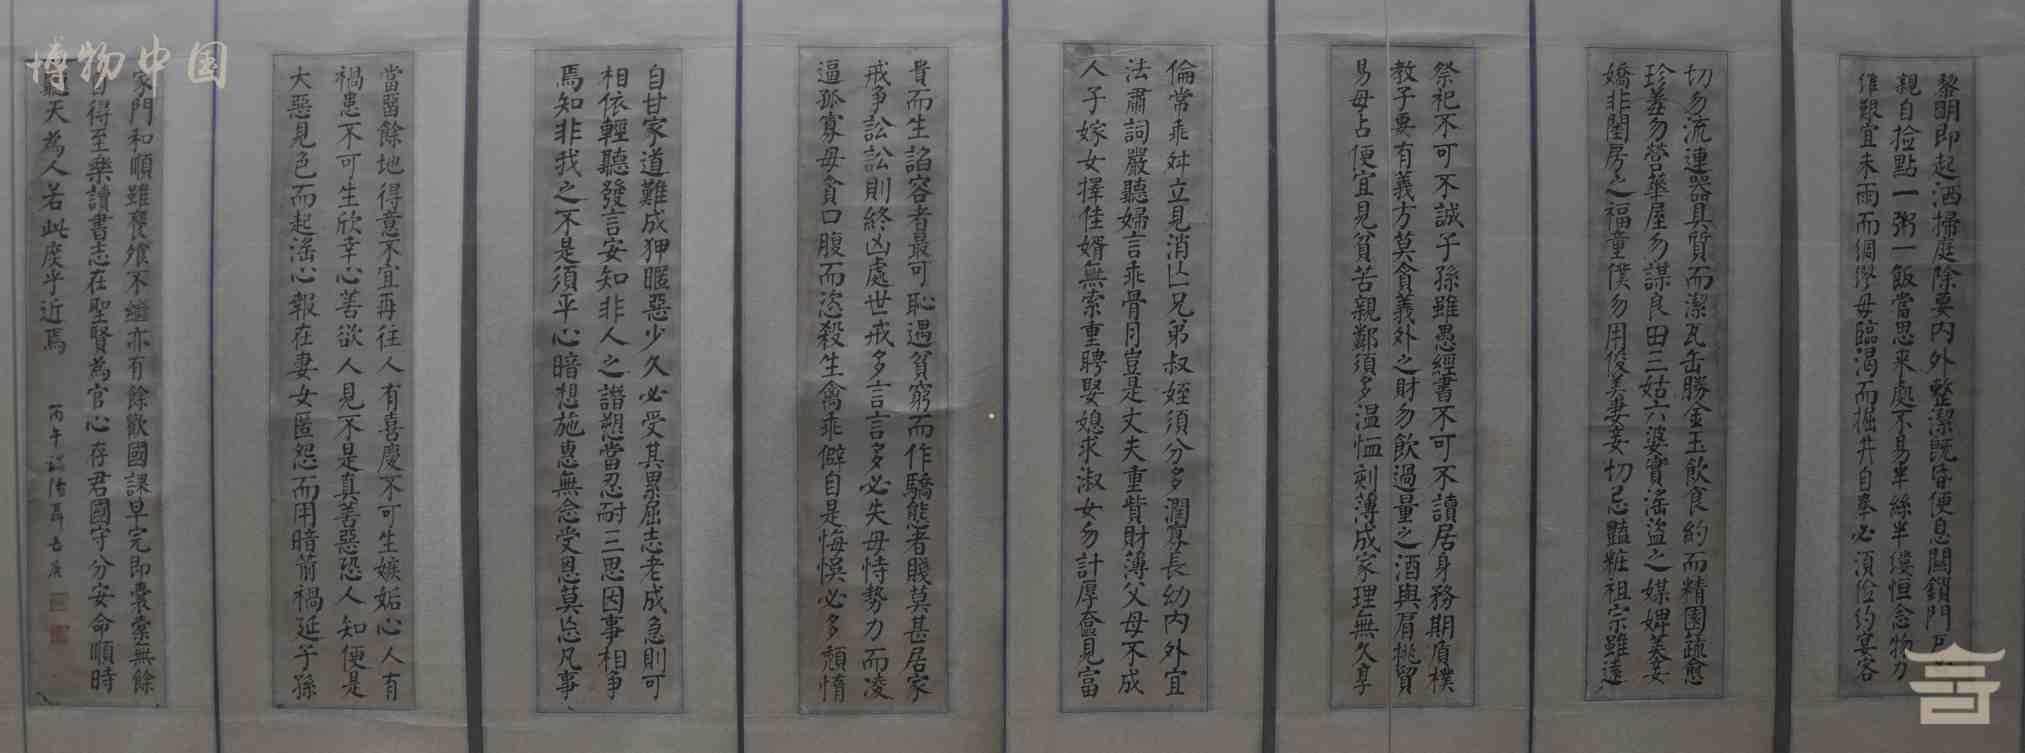 博物中国
黎明即起洒掃庭除要内外整潔既昏便息關鎖門戶必
親自捡點一粥一飯當思来處不易半絲半缕恒念物力
維艱宜未雨而綢繆毋臨渴而掘井自奉必須俭约宴客
切勿流連器具質而潔瓦缶勝金玉飲食約而精園蔬愈
珍羞勿營華屋勿謀良田三姑六婆實滛盜之媒婢美妾
嬌非閨房之福童僕勿用俊美妻妾切忌豔粧祖宗雖遠
祭祀不可不誠子孫雖愚經書不可不讀居身務期質樸
教子要有義方莫貪義外之財勿飲過量之酒與肩挑貿
易毋占便宜見貧苦親鄰須多温恤刻薄成家理無久享
倫常乖舛立見消亡兄弟叔姪須分多潤寡長幼内外宜
法肅詞嚴聽婦言乖骨月豈是丈夫重貲財薄父母不成
人子嫁女擇佳婿無索重聘娶媳求淑女勿計厚奩見富
貴而生諂容者最可恥遇貧窮而作驕態者賤莫甚居家
戒爭訟訟則終凶處世戒多言言多必失毋恃勢力而凌
逼孤寡毋貪口腹而恣殺生禽乖僻自是悔悞必多頹惰
自甘家道難成狎暱惡少久必受其累屈志老成急則可
相依輕聽發言安知非人之譖愬當忍耐三思因事相爭
焉知非我之不是須平心暗想施惠無念受恩莫忘凡事
當留餘地得意不宜再往人有喜慶不可生嫉妬心人有
禍患不可生欣幸心善欲人見不是真善惡恐人知便是
大惡見色而起滛心報在妻女匿怨而用暗箭禍延子孫
家門和順雖饔飧不繼亦有餘歡國課早完即囊橐無餘
自得至樂讀書志在聖賢為官心存君國守分安命順時
聽天為人若此庶乎近焉
丙午